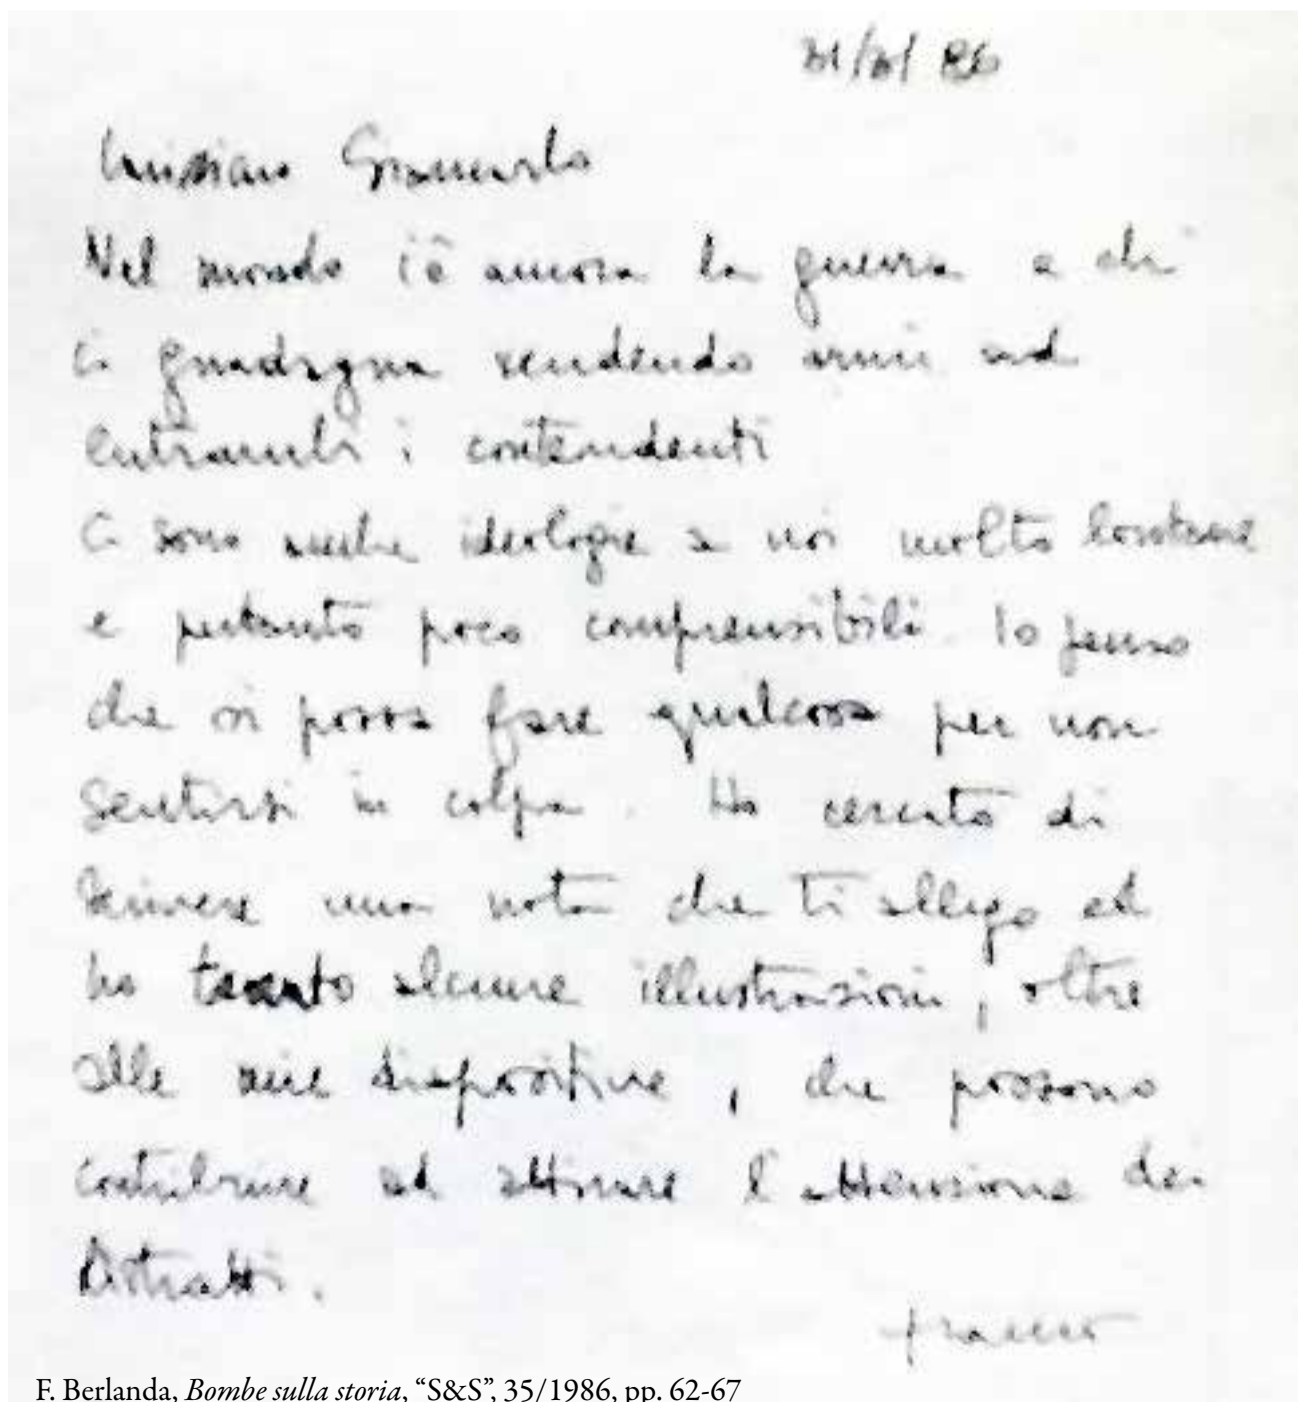 Carissimo Giancarlo
Nel mondo c'è ancora la guerra e chi
ci guadagna vendendo armi ad
entrambi i contendenti
Ci sono anche ideologie a noi molto lontane
e pertanto poco comprensibili. Io penso
che si possa fare qualcosa per non
sentirsi in colpa. Ho cercato di
scrivere una nota che ti allego ed
ho alcune illustrazioni, oltre
alle mie diapositive, che possono
contribuire ad attirare l'attenzione dei
distratti.
Franco
F. Berlanda, Bombe sulla storia, “S&S”, 35/1986, pp. 62-67